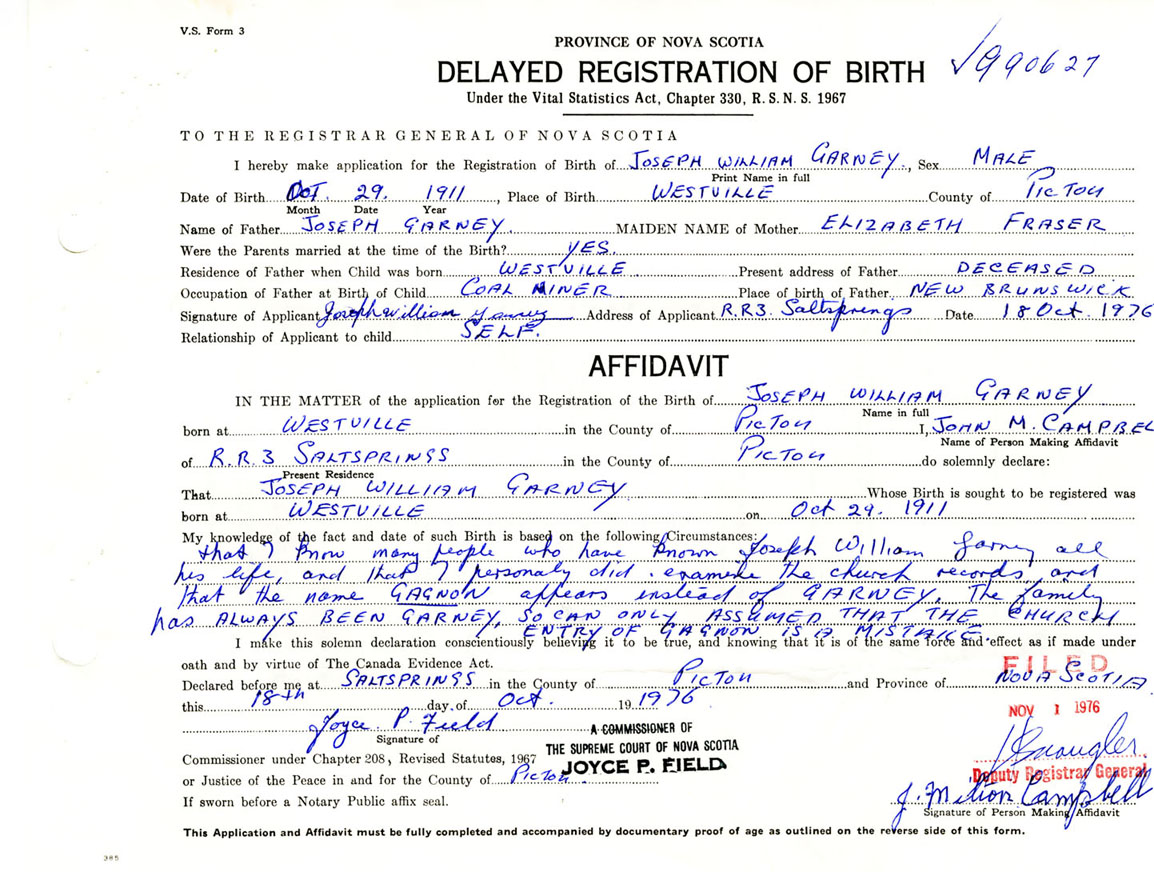 V.S. Form 3
PROVINCE OF NOVA SCOTIA
DELAYED REGISTRATION OF BIRTH
√990627
Under the Vital Statistics Act, Chapter 330, R.S.N.S. 1967
TO THE REGISTRAR GENERAL OF NOVA SCOTIA
I hereby make application for the Registration of Birth of JOSEPH WILLIAM GARNEY, Sex MALE
Print Name in full
Date of Birth OCT. 29. 1911, Place of Birth WESTVILLE County of PICTOU
Month Date Year
Name of Father JOSEPH GARNEY. MAIDEN NAME of Mother ELIZABETH FRASER
Were the Parents married at the time of the Birth? YES.
Residence of Father when Child was born WESTVILLE Present address of Father DECEASED
Occupation of Father at Birth of Child COAL MINER Place of birth of Father NEW BRUNSWICK
Signature of Applicant Joseph William Garney Address of Applicant R.R3. Saltsprings Date 18 Oct. 1976
Relationship of Applicant to child SELF.
AFFIDAVIT
IN THE MATTER of the application for the Registration of the Birth of JOSEPH WILLIAM GARNEY
Name in full
born at WESTVILLE in the County of PICTOU I, JOHN M. CAMPBEL
Name of Person Making Affidavit
of R.R.3 SALTSPRINGS in the County of PICTOU do solemnly declare:
Present Residence
That JOSEPH WILLIAM GARNEY Whose Birth is sought to be registered was
born at WESTVILLE on Oct 29. 1911
My knowledge of the fact and date of such Birth is based on the following Circumstances:
that I know many people who have known Joseph William Garney all
his life, and that I personaly did examine the church records and
that the name GAGNON appears instead of GARNEY. The family
has ALWAYS BEEN GARNEY, SO CAN ONLY ASSUMED THAT THE CHURCH
ENTRY OF GAGNON IS A MISTAKE.
I make this solemn declaration conscientiously believing it to be true, and knowing that it is of the same force and effect as if made under
oath and by virtue of The Canada Evidence Act.
FILED
Declared before me at SALTSPRINGS in the County of PICTOU and Province of NOVA SCOTIA
this 18th day of Oct. 1976
NOV 1 1976
Joyce P. Field
A COMMISSIONER OF
Signature of
THE SUPREME COURT OF NOVA SCOTIA
Commissioner under Chapter 208, Revised Statutes, 1967
JOYCE P. FIELD
Deputy Registrar General
or Justice of the Peace in and for the County of Pictou
J. Milton Campbell
If sworn before a Notary Public affix seal.
Signature of Person Making Affidavit
This Application and Affidavit must be fully completed and accompanied by documentary proof of age as outlined on the reverse side of this form.
385